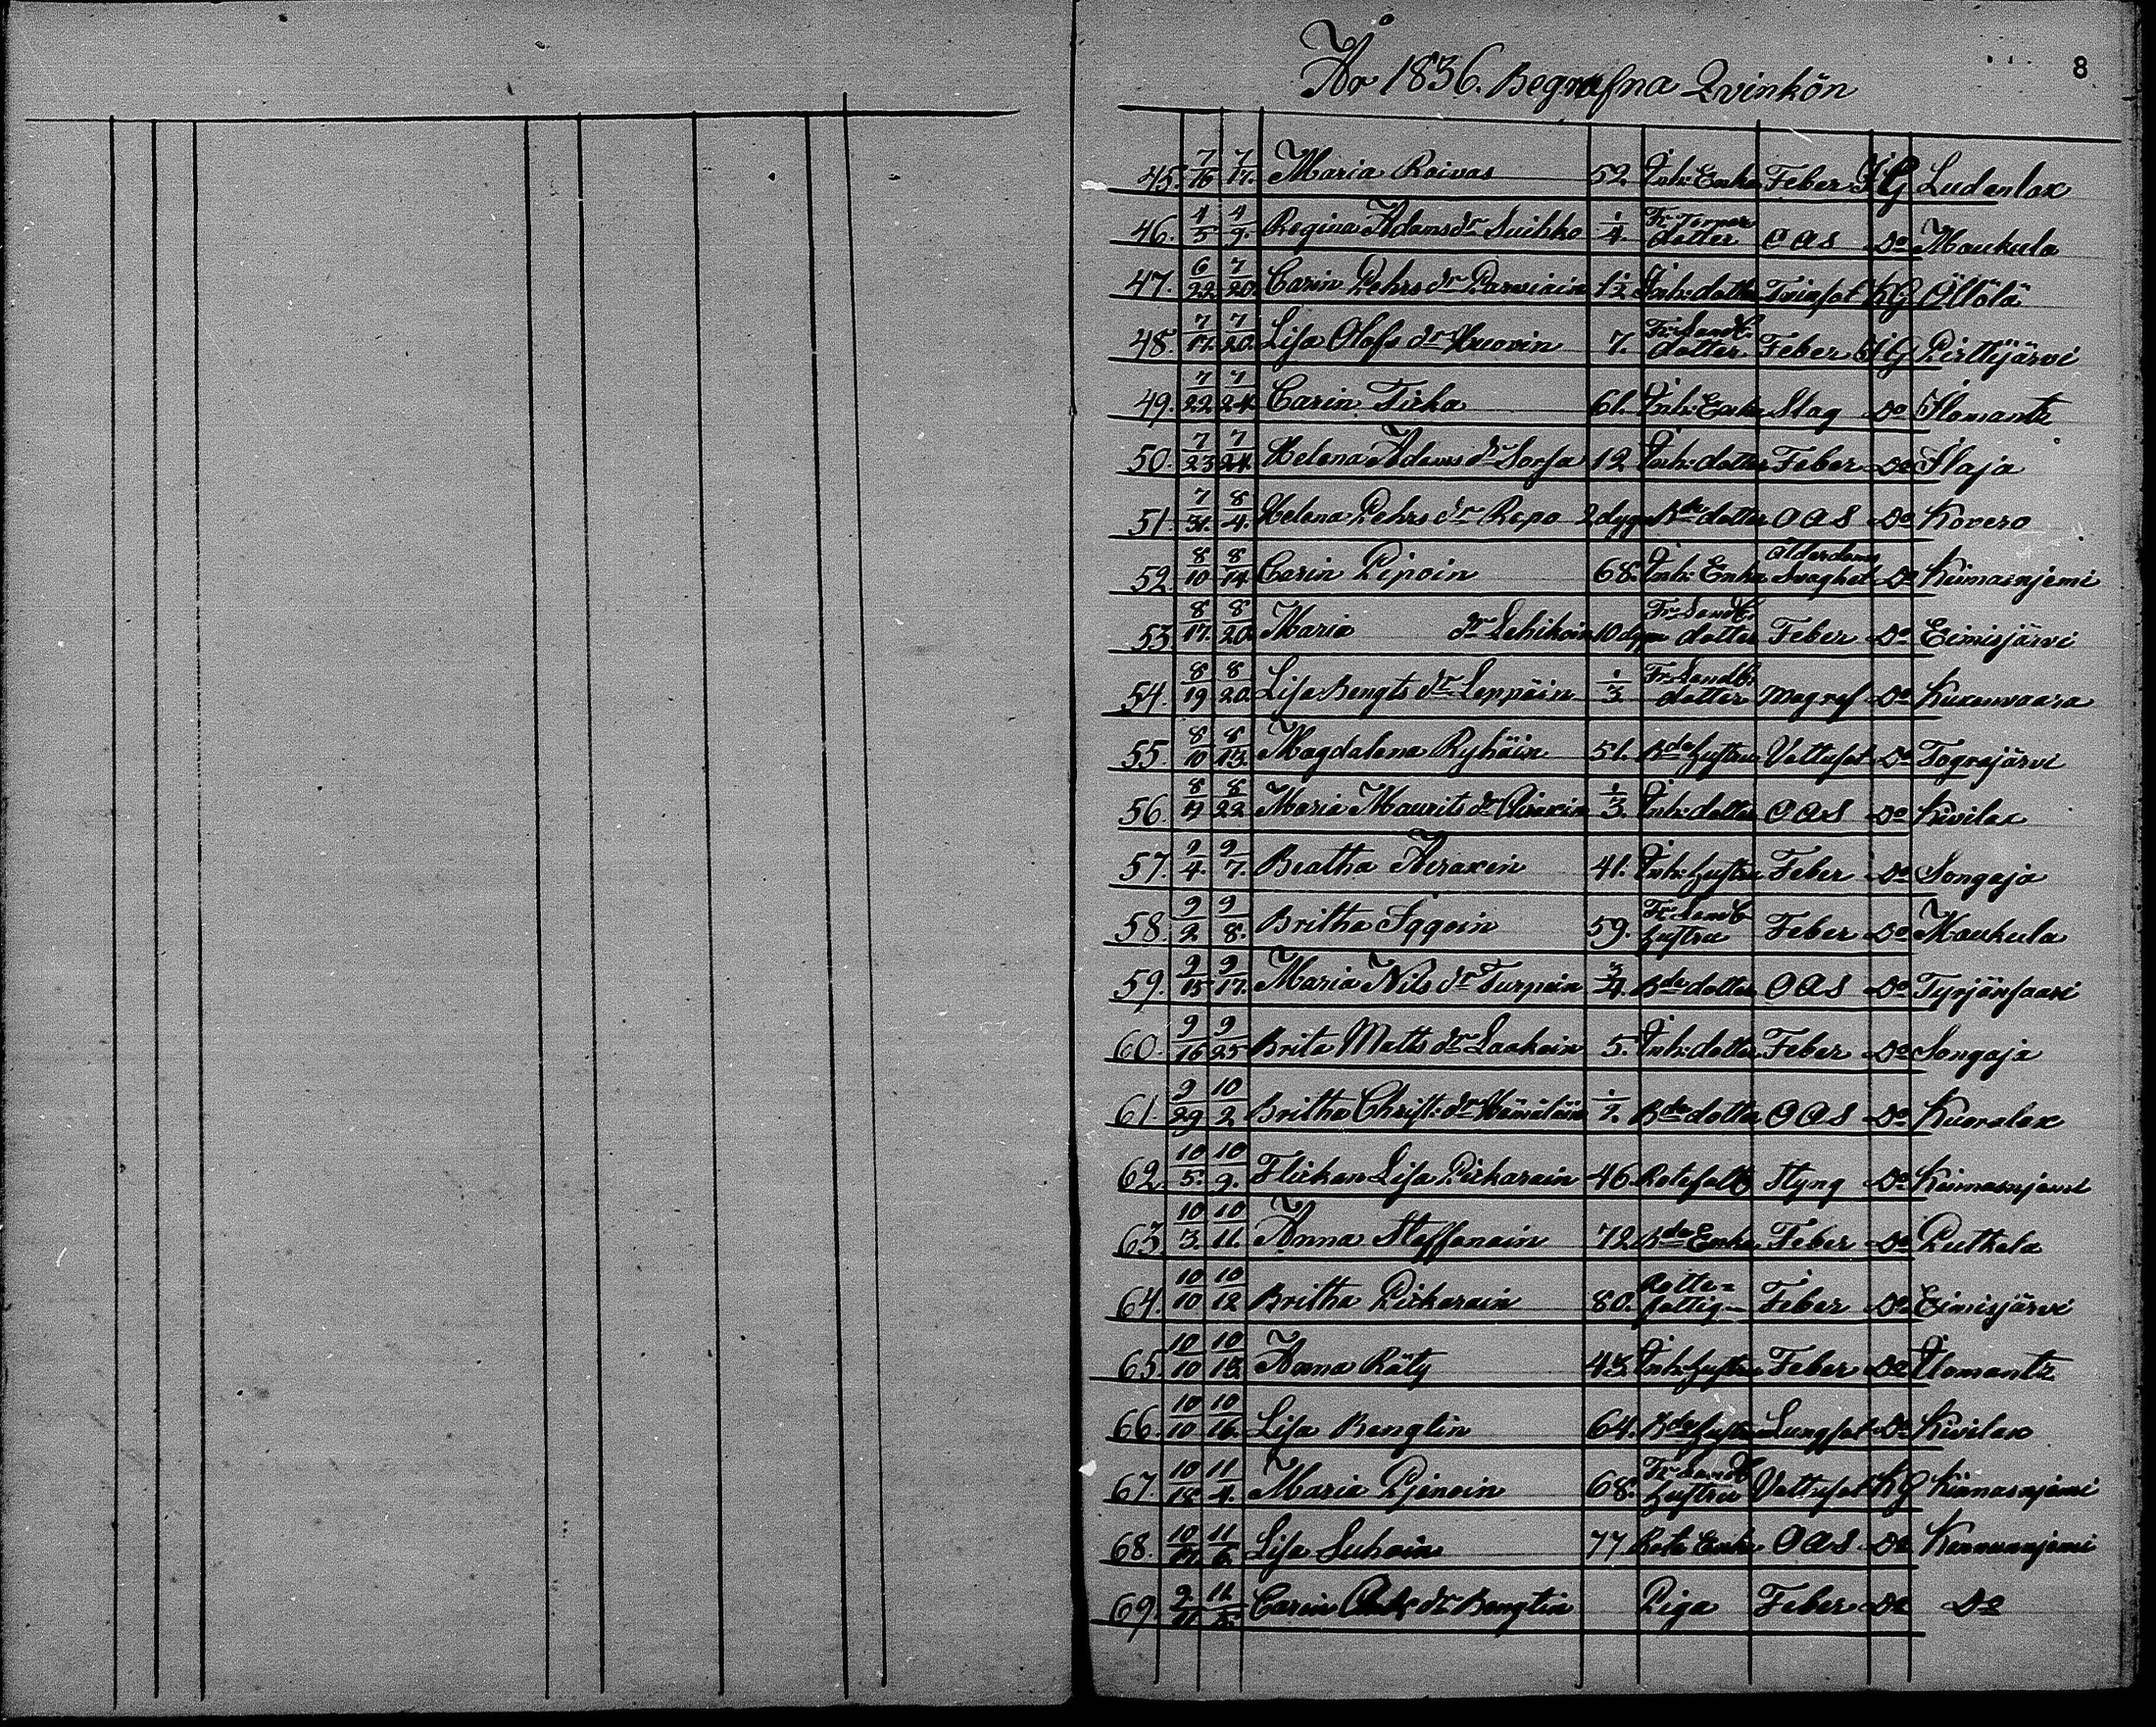 8
År 1836. Begrafna Qvinkön
45. 7/16 7/17. Maria Roivas 52 Inh: Enka Feber I G Ludenlax
46. 4/5 4/9. Regina Adams dr Suihko 1/4 Fr. Torpar dotter O A S Do Maukula
47. 6/22 7/20 Carin Pehrs dr Parviain 1 1/2 Inh: dotter Tvinsot K G Öllölä
48. 7/17. 7/20. Lisa Olofs dr Huovin 7. Fr. Landb. dotter Feber I G Pirttijärvi
49. 7/22 7/24 Carin Tirka 61. Inh: Enka Slag Do Ilomants
50. 7/23 7/24. Helena Adams dr Sorsa 12 Inh: dotter Feber Do Ilaja
51. 7/31. 8/4. Helena Pehrs dr Repo 2 dygn Bde dotter O A S Do Kovero
52. 8/10 8/14 Carin Piipoin 68. Inh: Enka Ålderdoms Svaghet Do Kiimasnjemi
53 8/17. 8/20 Maria dr Lehikoin 10 dygn Fr. Landb. dotter Feber Do Eimisjärvi
54. 8/19 8/20. Lisa Bengts dr Leppäin 1/3 Fr. Landb. dotter Magref Do Kuxenvaara
55. 8/10 8/13. Magdalena Ryhäin 51. Bde hustru Vattusot Do Tograjärvi
56. 8/17 8/22 Maria Maurits dr 1/3. Inh: dotter O A S Do Kivilax
57. 9/4. 9/7. Beatha Airaxin 41. Inh: hustru Feber Do Songaja
58. 9/2 9/8. Britha Iggoin 59. Fr. Landb hustru Feber Do Maukula
59. 9/15 9/17. Maria Nils dr Turpein 3/4. Bde dotter O A S Do Tyrjänsaari
60. 9/16 9/25 Brita Matts dr Laakoin 5. Inh: dotter Feber Do Songaja
61. 9/29 10/2. Britha Christ: dr Hämäläin 1/2. Bde dotter O A S Do Kuoralax
62. 10/5. 10/9. Flickan Lisa Pickarain 46. Rotefatt Styng Do Kiimasnjemi
63 10/3. 10/11. Anna Staffanain 72. Bde Enka Feber Do Putkela
64. 10/10 10/12 Britha Pickarain 80. Rotte= fattig Feber Do Eimisjärvi
65. 10/10 10/13. Anna Räty 43 Inh: hustru Feber Do Ilomants
66. 10/10 10/16. Lisa Bengtin 64. Bde hustru Lungsot Do Kivilax
67. 10/18 11/4. Maria Piponin 68. Fr. Landb hustru Vattusot K G Kiimasnjemi
68. 10/17. 11/6. Lisa Suhoin 77 Rote Enka O A S Do Kiimasnjemi
69. 9/11. 11/5. Carin dr Bengtin Piga Feber Do Do